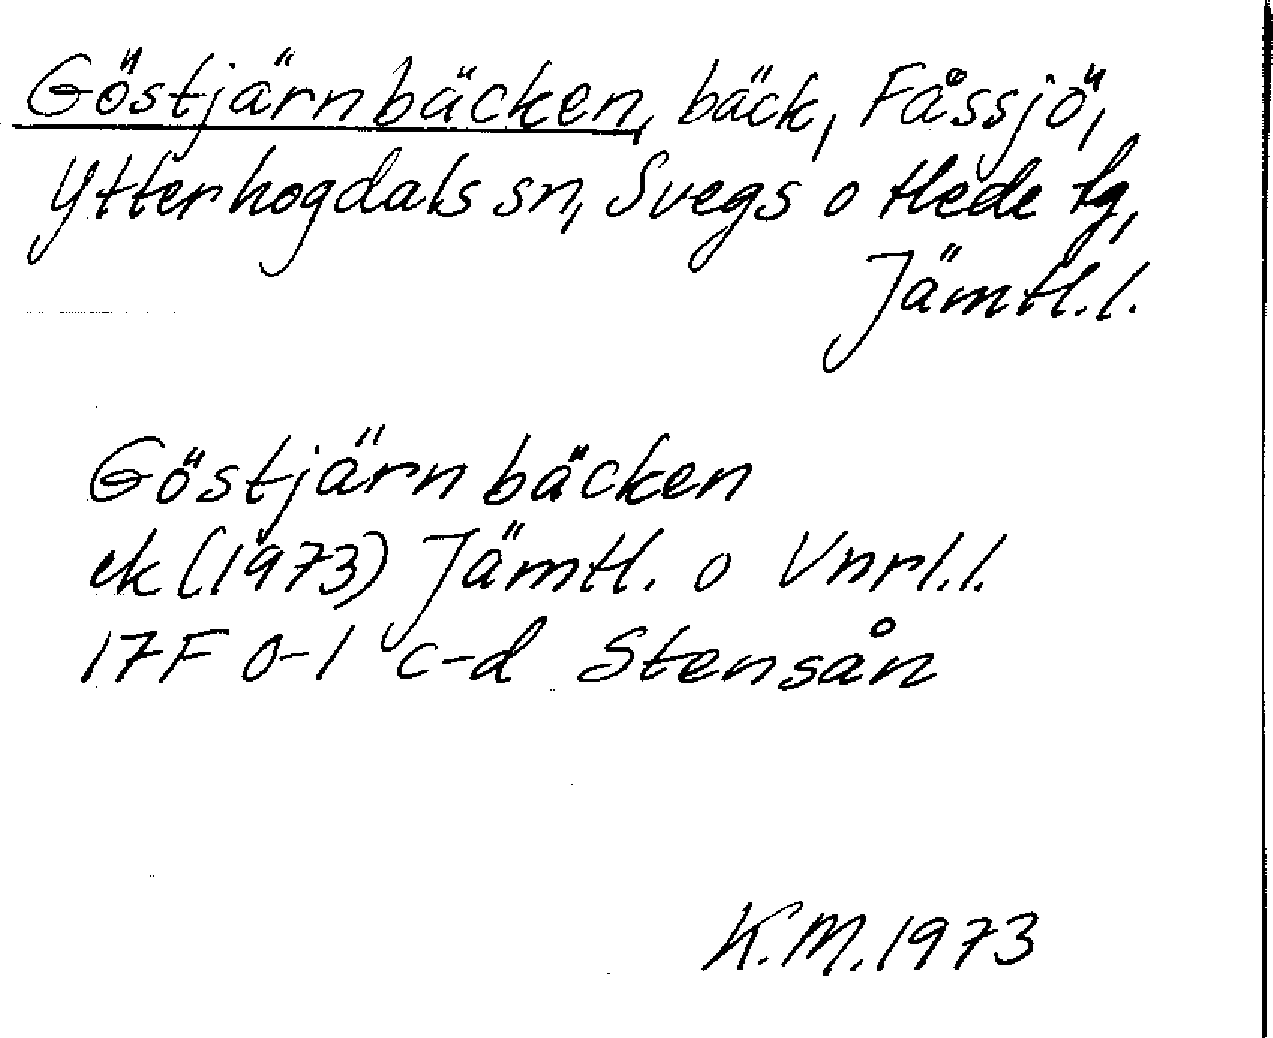 Göstjärnbäcken, bäck, Fåssjö,
Ytterhogdals sn, Svegs o Hede tg,
Jämtl. l.
Göstjärnbäcken
ek (1973) Jämtl. o Vnrl. l.
17F 0-1 c-d Stensån
K.M. 1973